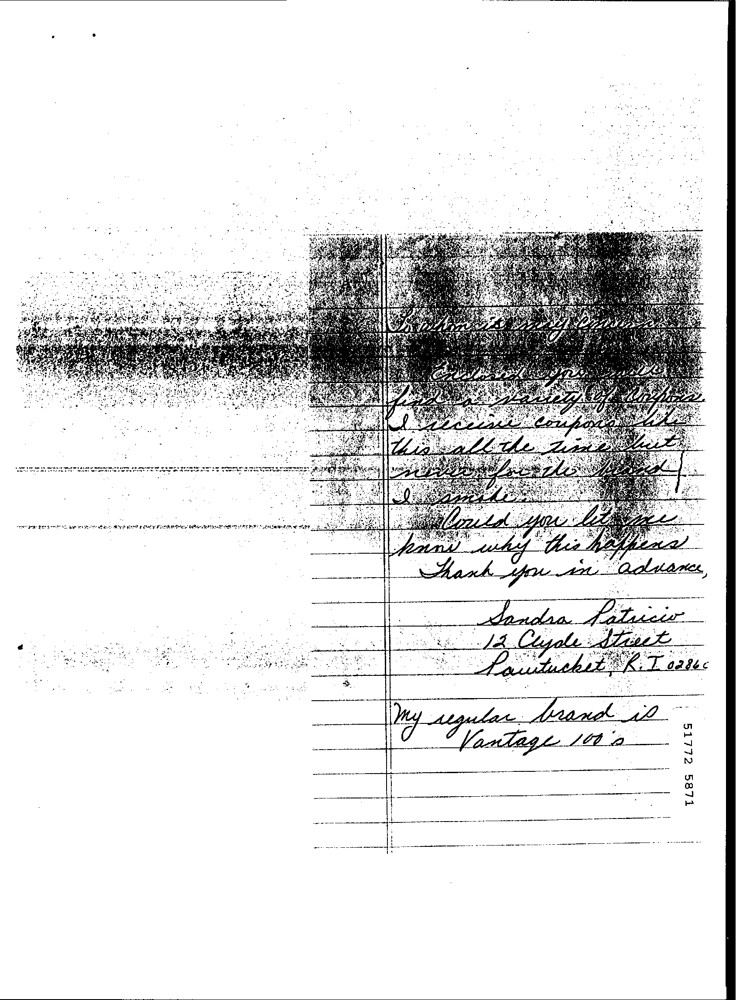 To whom it may concern
Enclosed you will
find a variety of coupons
I receive coupons like
this all the time but
never for the brand
I smoke.
Could you let me
know why this happens
Thank you in advance,
Sandra Patricio
12 Clyde Street
Pawtucket, R.I 02860
My regular brand is
Vantage 100's
51772 5871